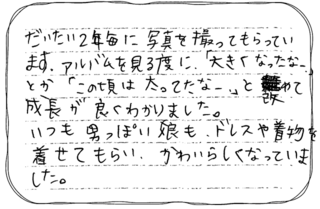 だいたい2年毎に写真を撮ってもらってい
ます。アルバムを見る度に、「大きくなったなー。」
とか「この頃は太ってたなー。」と改めて
成長が良くわかりました。
いつも男っぽい娘も、ドレスや着物を
着せてもらい、かわいらしくなっていま
した。